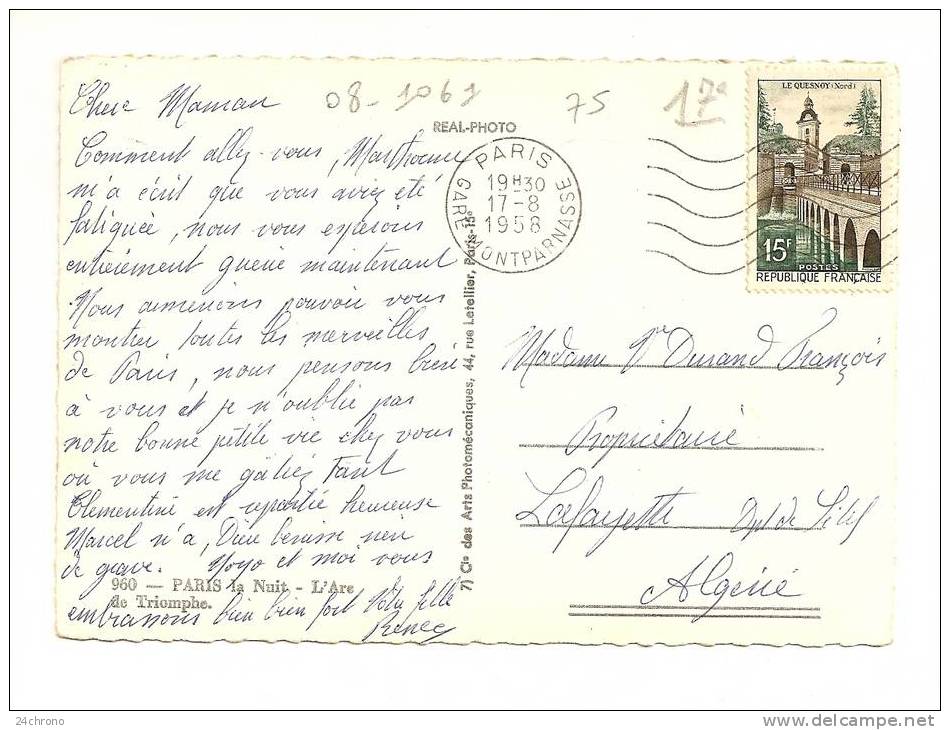 Chère Maman
Comment allez-vous, Marthome
m'a écrit que vous aviez été
fatiguée, nous vous espérons
entièrement guérie maintenant
Nous aimerions pouvoir vous
montrer toutes les merveilles
de Paris, nous pensons bien
à vous et je n'oublie pas
notre bonne petite vie chez vous
où vous me gâtiez tant
Clementine est repartie heureuse
Marcel n'a, Dieu bénisse rien
de grave. Yoyo et moi vous
embrassons bien bien fort Votre fille
Renée
960 — PARIS la Nuit - L'Arc
de Triomphe.
08-1061
75
17e
REAL-PHOTO
7) Cie des Arts Photomécaniques, 44, rue Letellier, Paris-15e
PARIS
19H30
17-8
1958
GARE MONTPARNASSE
LE QUESNOY (Nord)
15F
POSTES
REPUBLIQUE FRANÇAISE
Madame Ve Durand François
Propriétaire
Lafayette Dpt de Sétif
Algérie
24chrono
www.delcampe.net